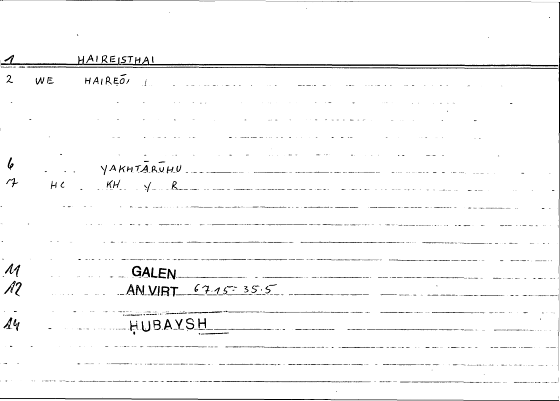 1 HAIREISTHAI
2 WE HAIREŌ,
6 YAKHTĀRUHU
7 HC KH Y R
11 GALEN
12 AN VIRT 6715-35.5
14 ḤUBAYSH